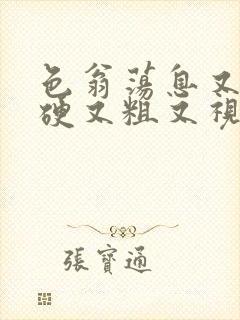 色翁荡息又
硬又粗又视
張寶通